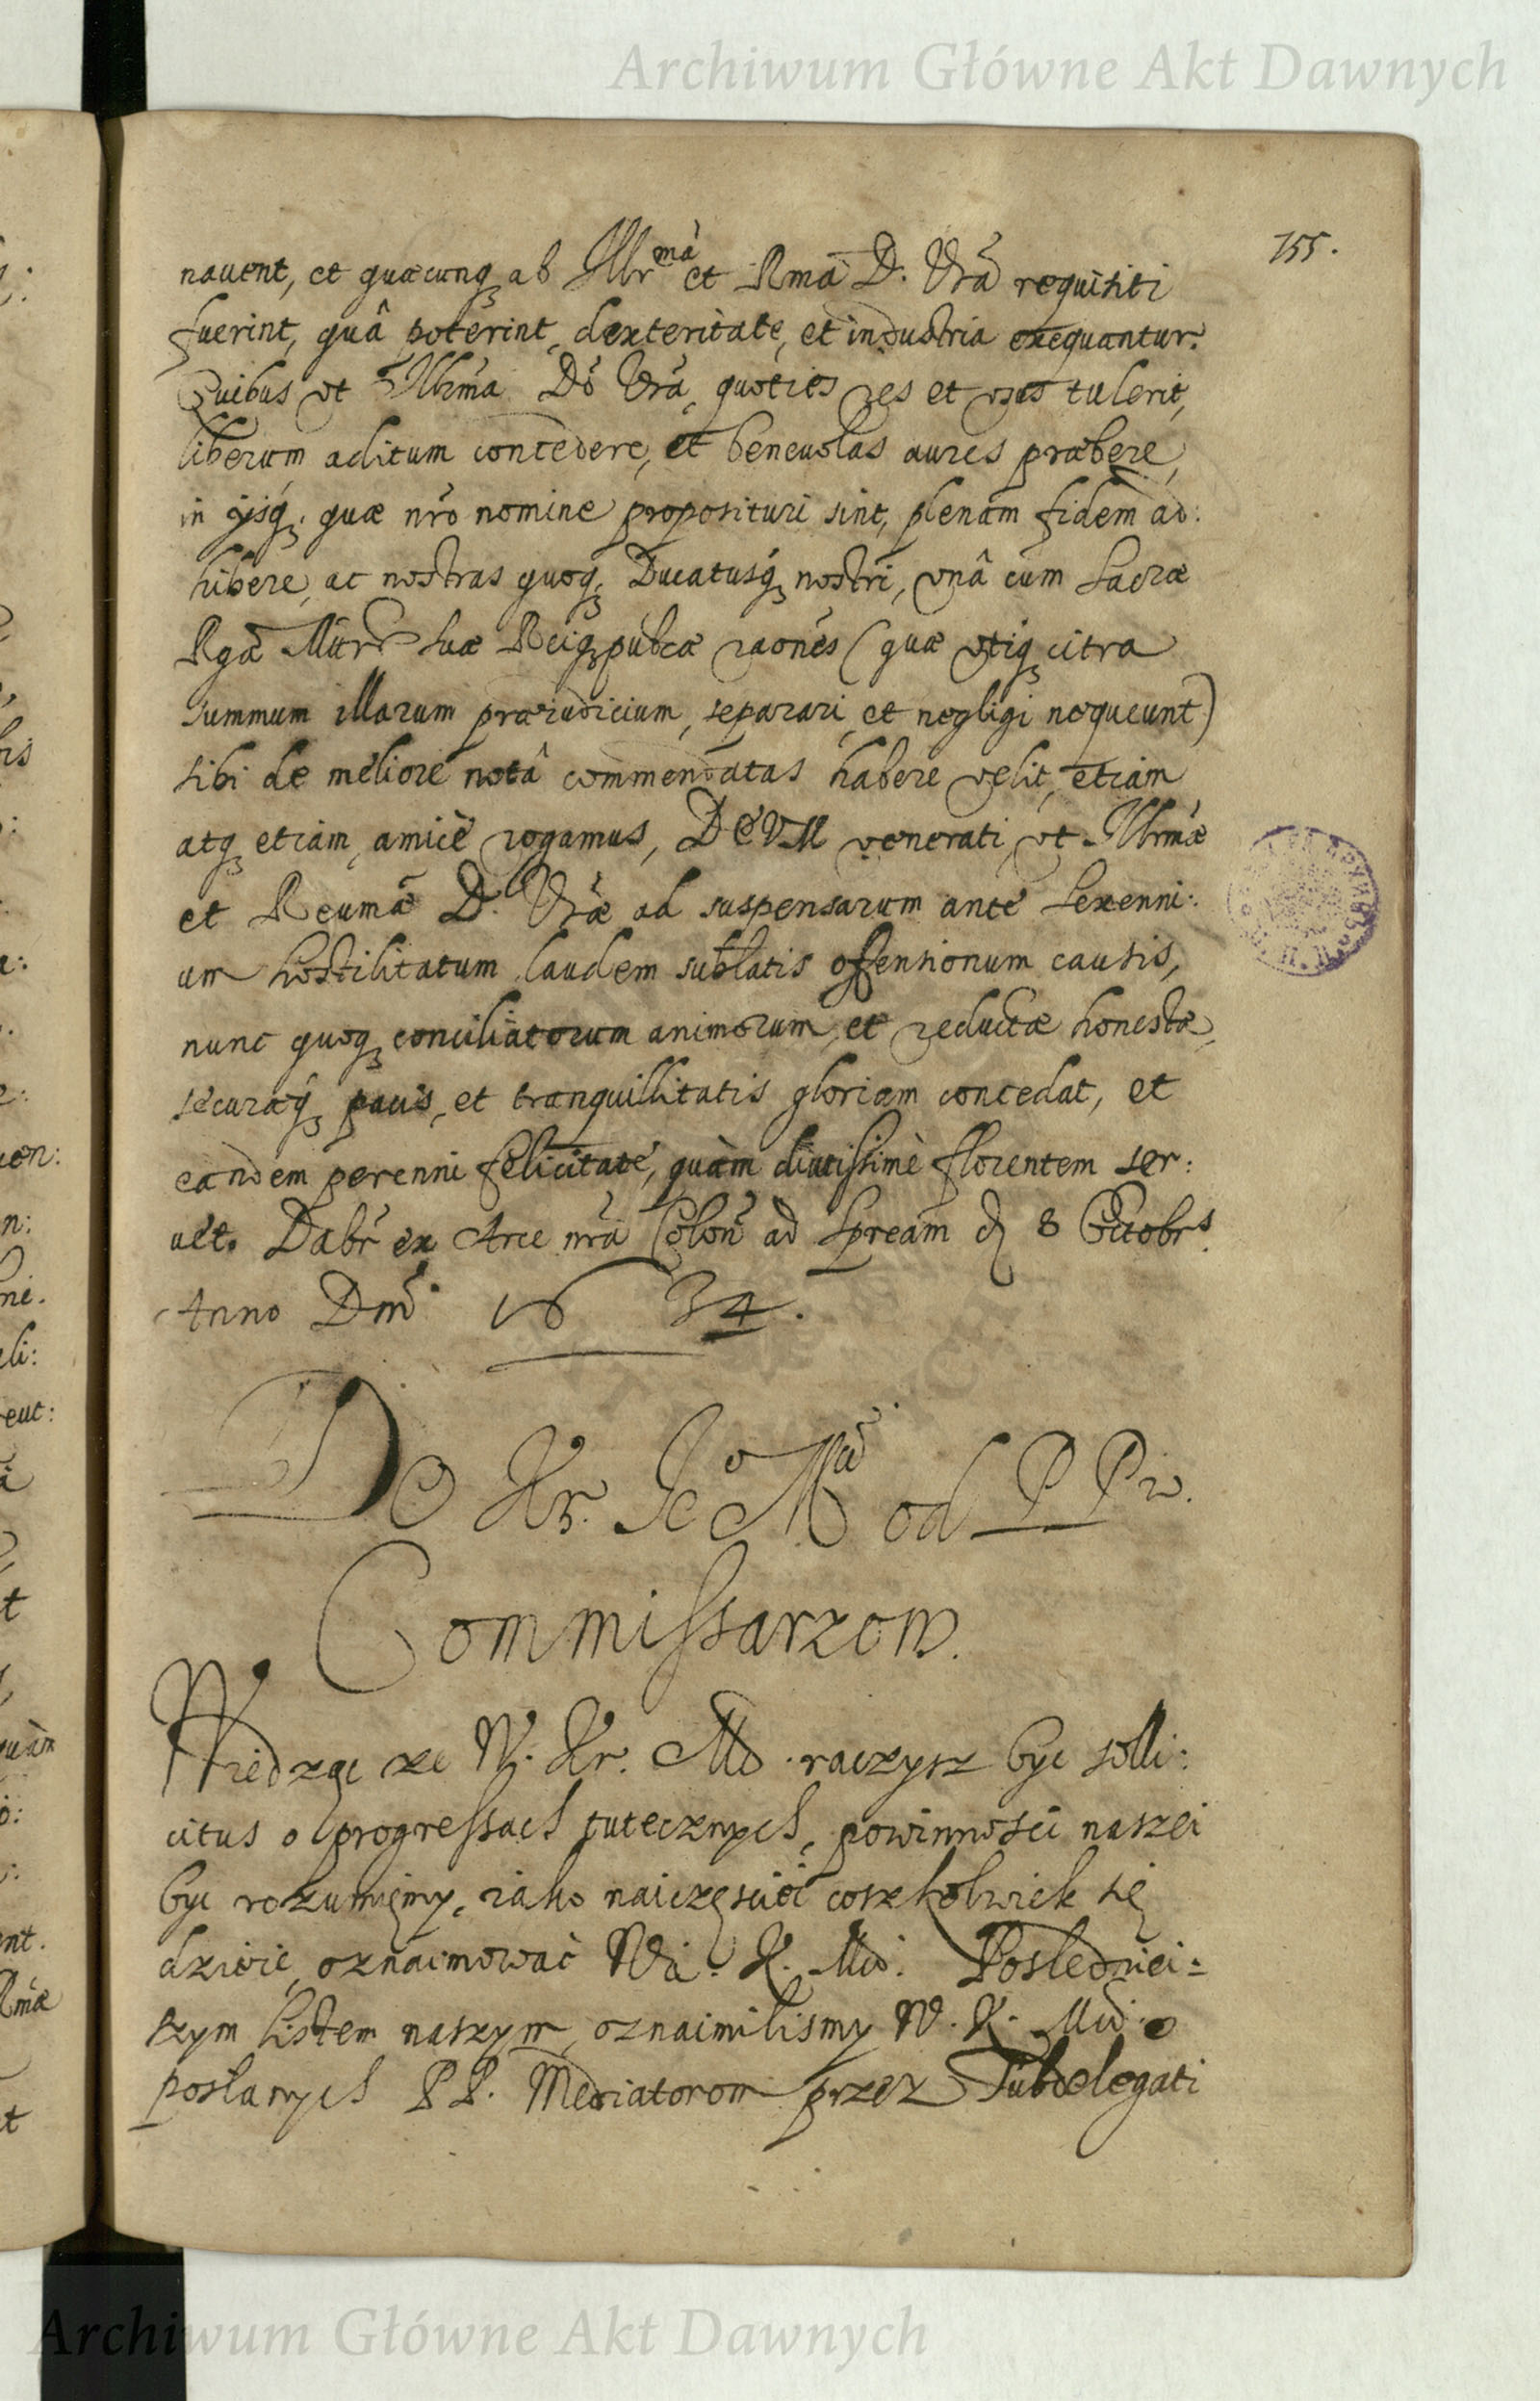 Archiwum Główne Akt Dawnych
155.
nauent, et quæcunq, ab Illr^mâ et Rmâ D. Vrâ requisiti
fuerint, quâ poterint, dexteritate, et industria exequantur.
Quibus vt Illrma Dô Vrâ, quoties res et vsus tulerit,
liberum aditum concedere, et beneuolas aures præbere,
in ijsq, quæ nrô nomine proposituri sint, plenam fidem ad:
hibere, ac nostras quoq, Ducatusq, nostri, vnâ cum Sacræ
Rgæ Mttis suæ Reiq, pubcæ raones (quæ vtiq, citra
summum illarum præiudicium, separari, et negligi nequeunt)
sibi de meliore notâ commendatas habere velit, etiam
atq, etiam, amicè rogamus, DEVM venerati, vt Illrmæ
et Reumæ D. Vræ ad suspensarum ante sexenni:
um hostilitatum laudem sublatis offensionum causis,
nunc quoq, conciliatorum animorum, et reductæ honestæ,
securæq, pacis, et tranquillitatis gloriam concedat, et
eandem perenni felicitate, quàm diutissimè florentem ser:
uet. Dabr ex Arce nrâ Colon ad Spream d 8 Octobrs.
Anno Dmi 1634.
Do Kr. Je^o M^ci od PPw.
Commissarzow.
Wiedząc ze W. Kr. Mć raczysz byc solli:
citus o progressach tutecznych, powinności naszei
byc rozumięmy, iako naiczęściei coszkolwiek się
dzieie, oznaimować Wa. K. Mći. Posledniei:
szym listem naszym, oznaimilismy W. K. Mći. o
posłanych PP. Mediatorom przez Subdelegati
Archiwum Główne Akt Dawnych